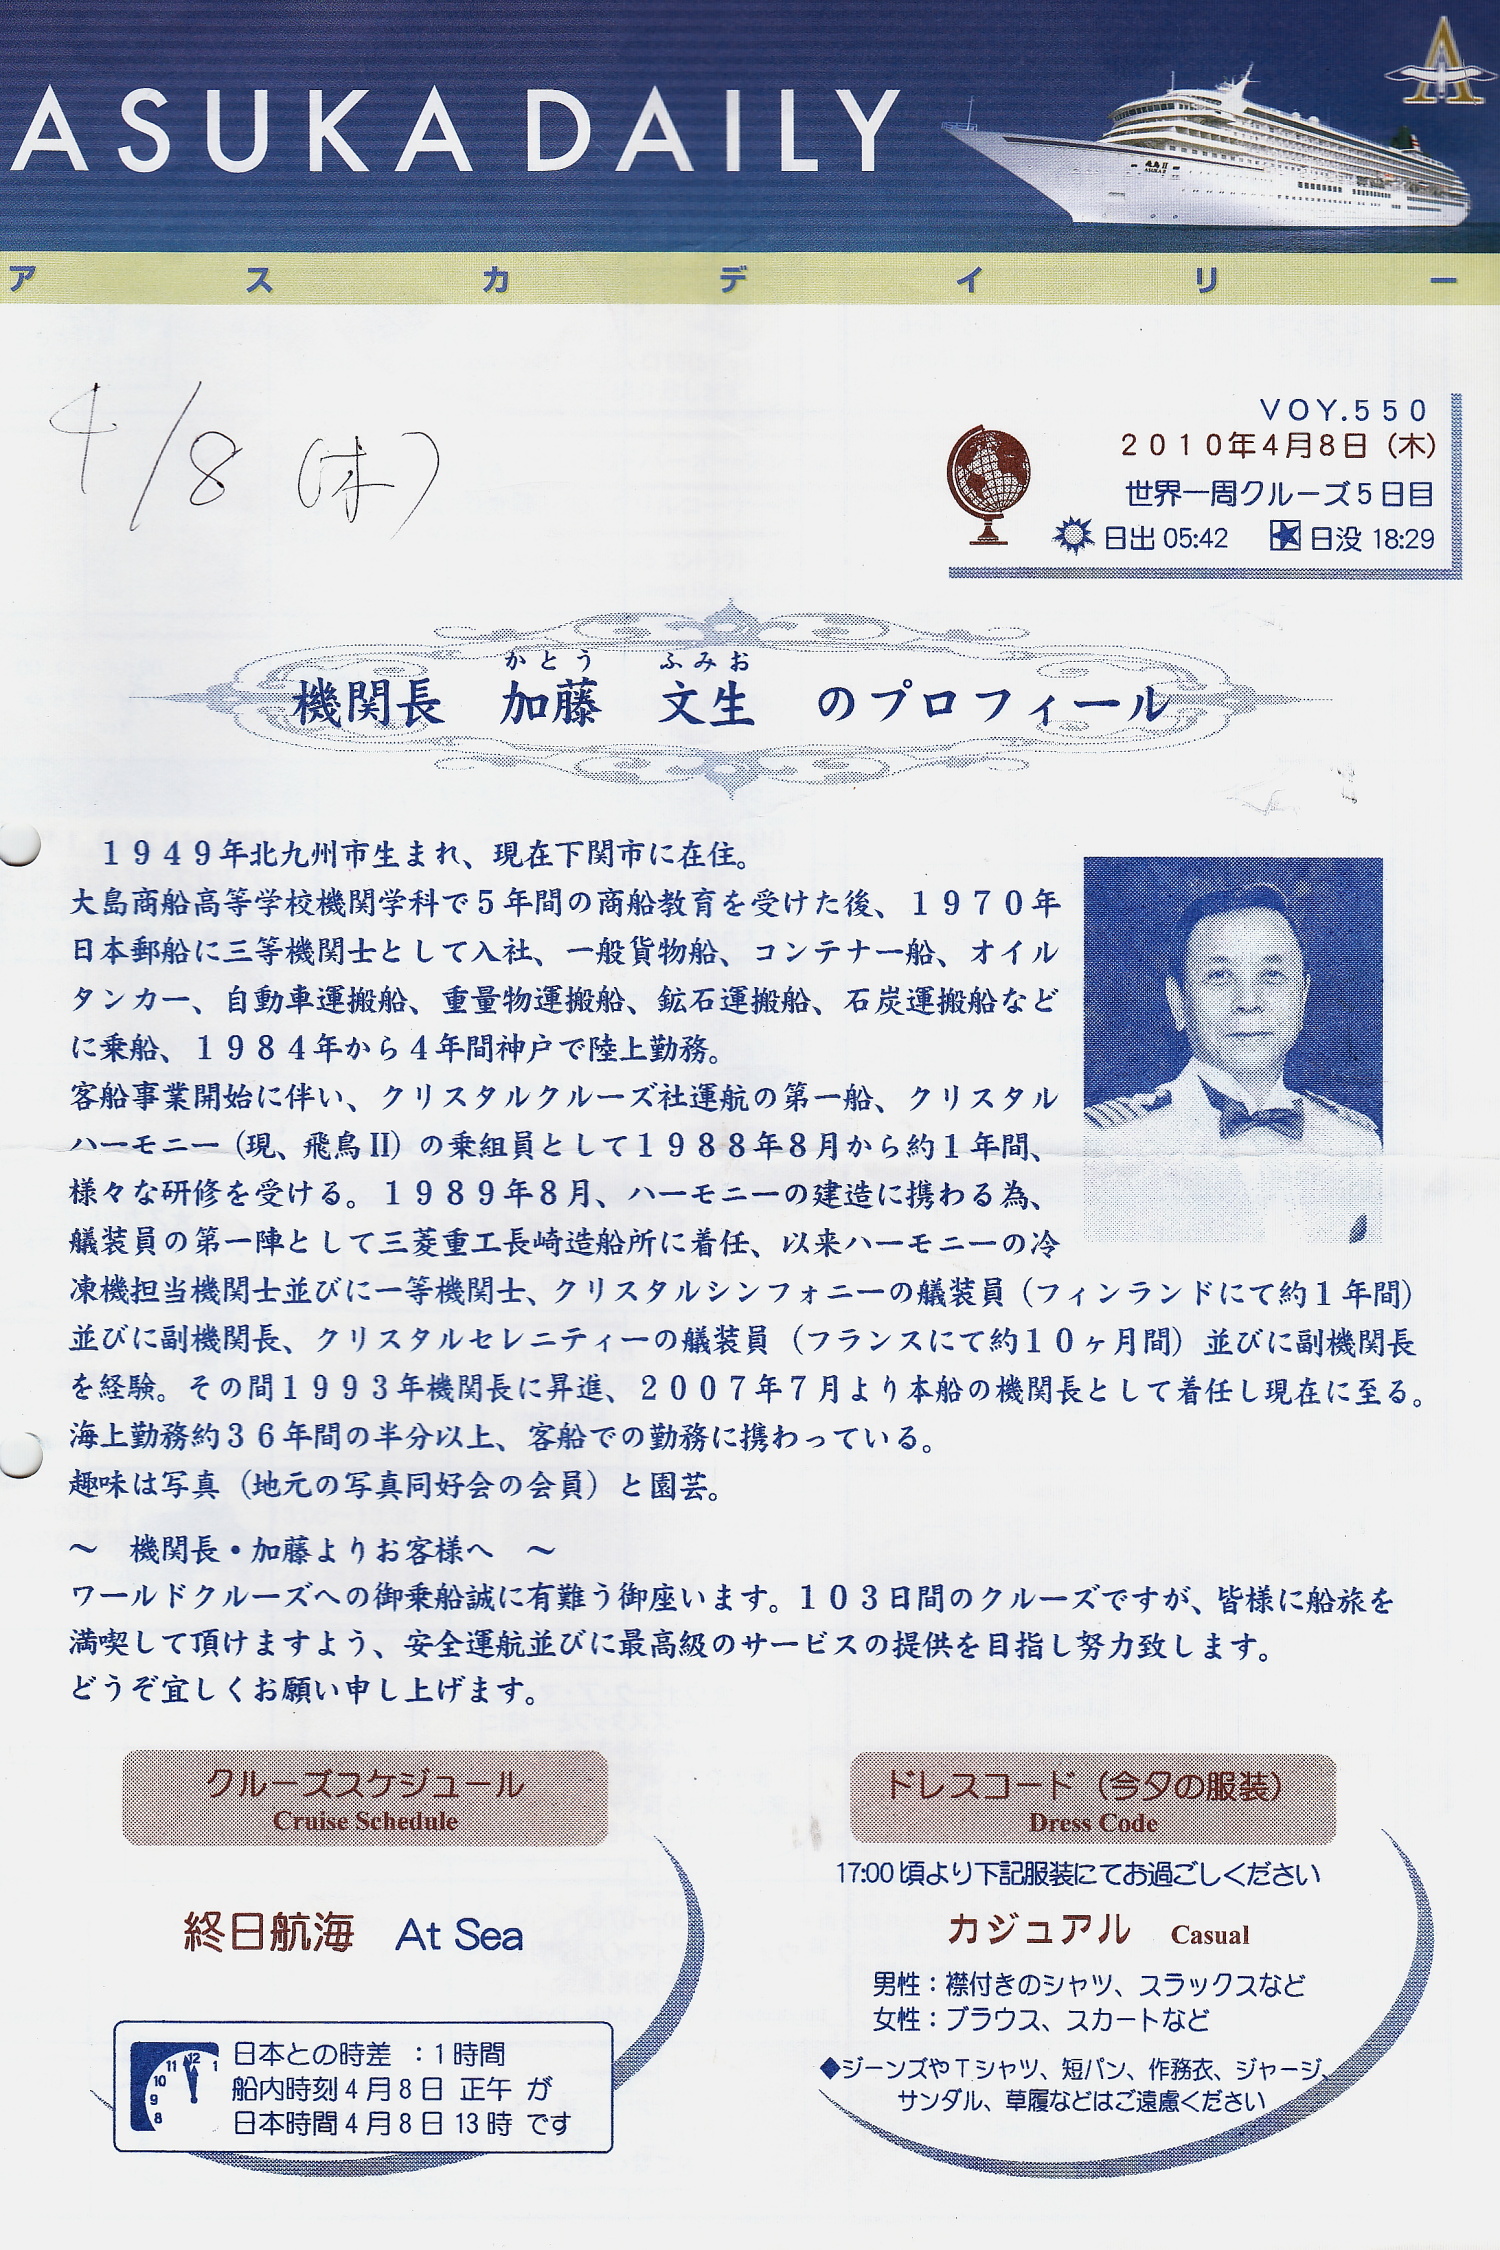 ASUKA DAILY
アスカデイリー
4/8 (木)
VOY.550
2010年4月8日（木）
世界一周クルーズ5日目
日出 05:42 日没 18:29
かとう ふみお
機関長 加藤 文生 のプロフィール
1949年北九州市生まれ、現在下関市に在住。
大島商船高等学校機関学科で5年間の商船教育を受けた後、1970年
日本郵船に三等機関士として入社、一般貨物船、コンテナー船、オイル
タンカー、自動車運搬船、重量物運搬船、鉱石運搬船、石炭運搬船など
に乗船、1984年から4年間神戸で陸上勤務。
客船事業開始に伴い、クリスタルクルーズ社運航の第一船、クリスタル
ハーモニー（現、飛鳥II）の乗組員として1988年8月から約1年間、
様々な研修を受ける。1989年8月、ハーモニーの建造に携わる為、
艤装員の第一陣として三菱重工長崎造船所に着任、以来ハーモニーの冷
凍機担当機関士並びに一等機関士、クリスタルシンフォニーの艤装員（フィンランドにて約1年間）
並びに副機関長、クリスタルセレニティーの艤装員（フランスにて約10ヶ月間）並びに副機関長
を経験。その間1993年機関長に昇進、2007年7月より本船の機関長として着任し現在に至る。
海上勤務約36年間の半分以上、客船での勤務に携わっている。
趣味は写真（地元の写真同好会の会員）と園芸。
～ 機関長・加藤よりお客様へ ～
ワールドクルーズへの御乗船誠に有難う御座います。103日間のクルーズですが、皆様に船旅を
満喫して頂けますよう、安全運航並びに最高級のサービスの提供を目指し努力致します。
どうぞ宜しくお願い申し上げます。
クルーズスケジュール
Cruise Schedule
終日航海 At Sea
日本との時差 ：1時間
船内時刻4月8日 正午 が
日本時間4月8日13時 です
ドレスコード（今夕の服装）
Dress Code
17:00頃より下記服装にてお過ごしください
カジュアル Casual
男性：襟付きのシャツ、スラックスなど
女性：ブラウス、スカートなど
◆ジーンズやTシャツ、短パン、作務衣、ジャージ、
サンダル、草履などはご遠慮ください